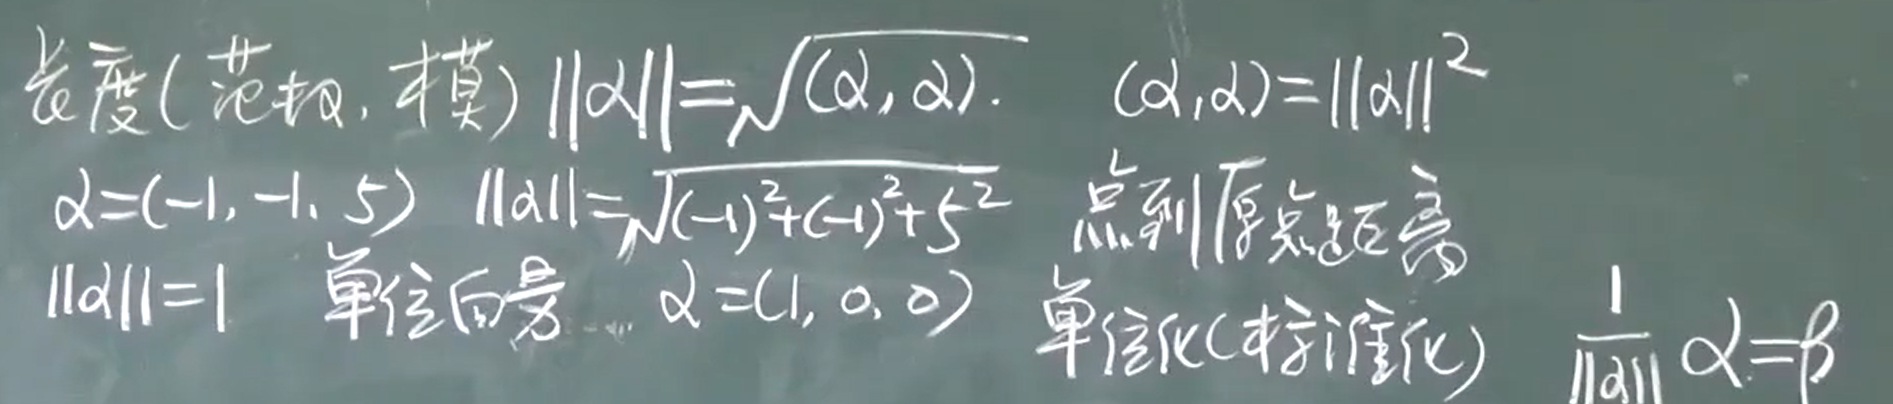 长度(范数,模) ||α||=√(α,α). (α,α)=||α||²
α=(-1,-1,5) ||α||=√(-1)²+(-1)²+5² 点到原点距离
||α||=1 单位向量 α=(1,0,0) 单位化(标准化) 1/||α|| α=β